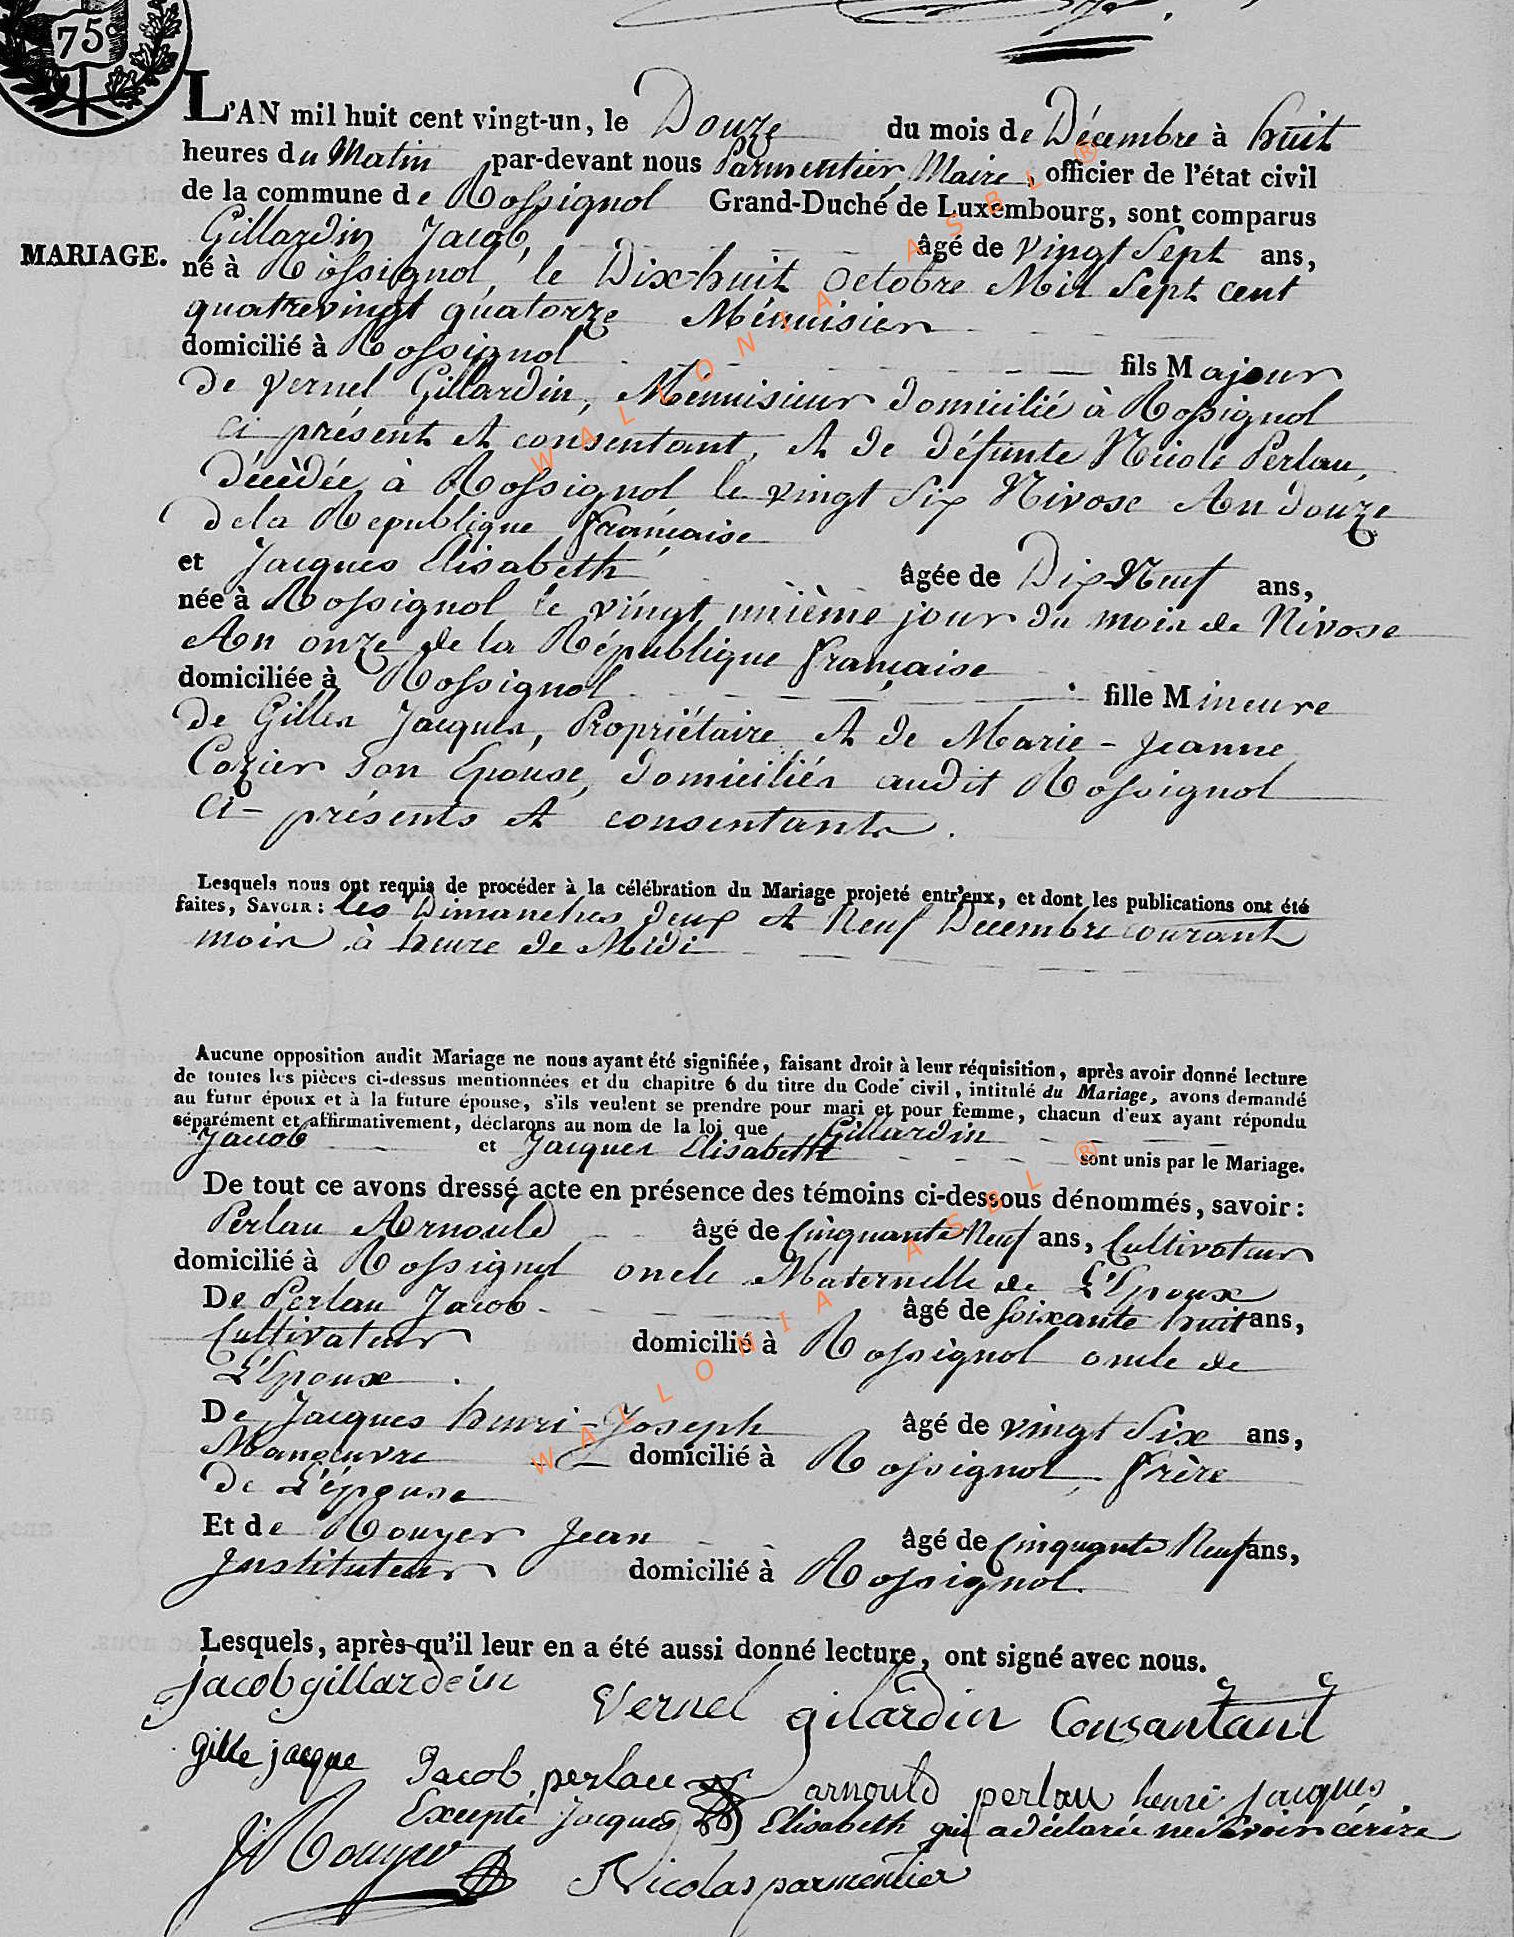 75c
L'AN mil huit cent vingt-un, le Douze du mois de Décembre à huit
heures du Matin par-devant nous Parmentier, Maire, officier de l'état civil
de la commune de Rossignol Grand-Duché de Luxembourg, sont comparus
Gillardin Jacob, âgé de vingt Sept ans,
MARIAGE.
né à Rossignol, le Dix-huit Octobre Mil Sept cent
quatrevingt quatorze Ménuisier
domicilié à Rossignol fils Majour
de Vernel Gillardin, Ménuisieur domicilié à Rossignol
ci présent et consentant, et de défunte Nicole Perlau,
décèdée à Rossignol le vingt Six Nivose An douze
de la Republique française
et Jacques Elisabeth âgée de Dix Neuf ans,
née à Rossignol le vingt unième jour du mois de Nivose
An onze de la République française
domiciliée à Rossignol fille Mineure
de Gilles Jacques, Propriétaire et de Marie-Jeanne
Cozier son Epouse, domiciliés audit Rossignol
ci-présents et consentants.
Lesquels nous ont requis de procéder à la célébration du Mariage projeté entr'eux, et dont les publications ont été
faites, SAVOIR : les Dimanches deux et Neuf Decembre courant
mois à heure de Midi
Aucune opposition audit Mariage ne nous ayant été signifiée, faisant droit à leur réquisition, après avoir donné lecture
de toutes les pièces ci-dessus mentionnées et du chapitre 6 du titre du Code civil, intitulé du Mariage, avons demandé
au futur époux et à la future épouse, s'ils veulent se prendre pour mari et pour femme, chacun d'eux ayant répondu
séparément et affirmativement, déclarons au nom de la loi que Gillardin
Jacob et Jacques Elisabeth sont unis par le Mariage.
De tout ce avons dressé acte en présence des témoins ci-dessous dénommés, savoir :
Perlau Arnould âgé de Cinquante Neuf ans, Cultivateur
domicilié à Rossignol oncle Maternelle de L'Epoux
De Perlau Jacob âgé de Soixante huit ans,
Cultivateur domicilié à Rossignol oncle de
L'Epoux.
De Jacques henri-Joseph âgé de vingt Six ans,
Manœuvre domicilié à Rossignol, frère
de L'épouse
Et de Rouyer Jean âgé de Cinquante Neuf ans,
Instituteur domicilié à Rossignol.
Lesquels, après qu'il leur en a été aussi donné lecture, ont signé avec nous.
jacob gillardein Vernel gilardin Consantant
gille jacque Jacob perlau arnould perlau henri jacques
Excepté Jacques Elisabeth qui a déclarée ne Savoir cérire
J Rouyer Nicolas parmentier
WALLONIA ASBL ®
WALLONIA ASBL ®